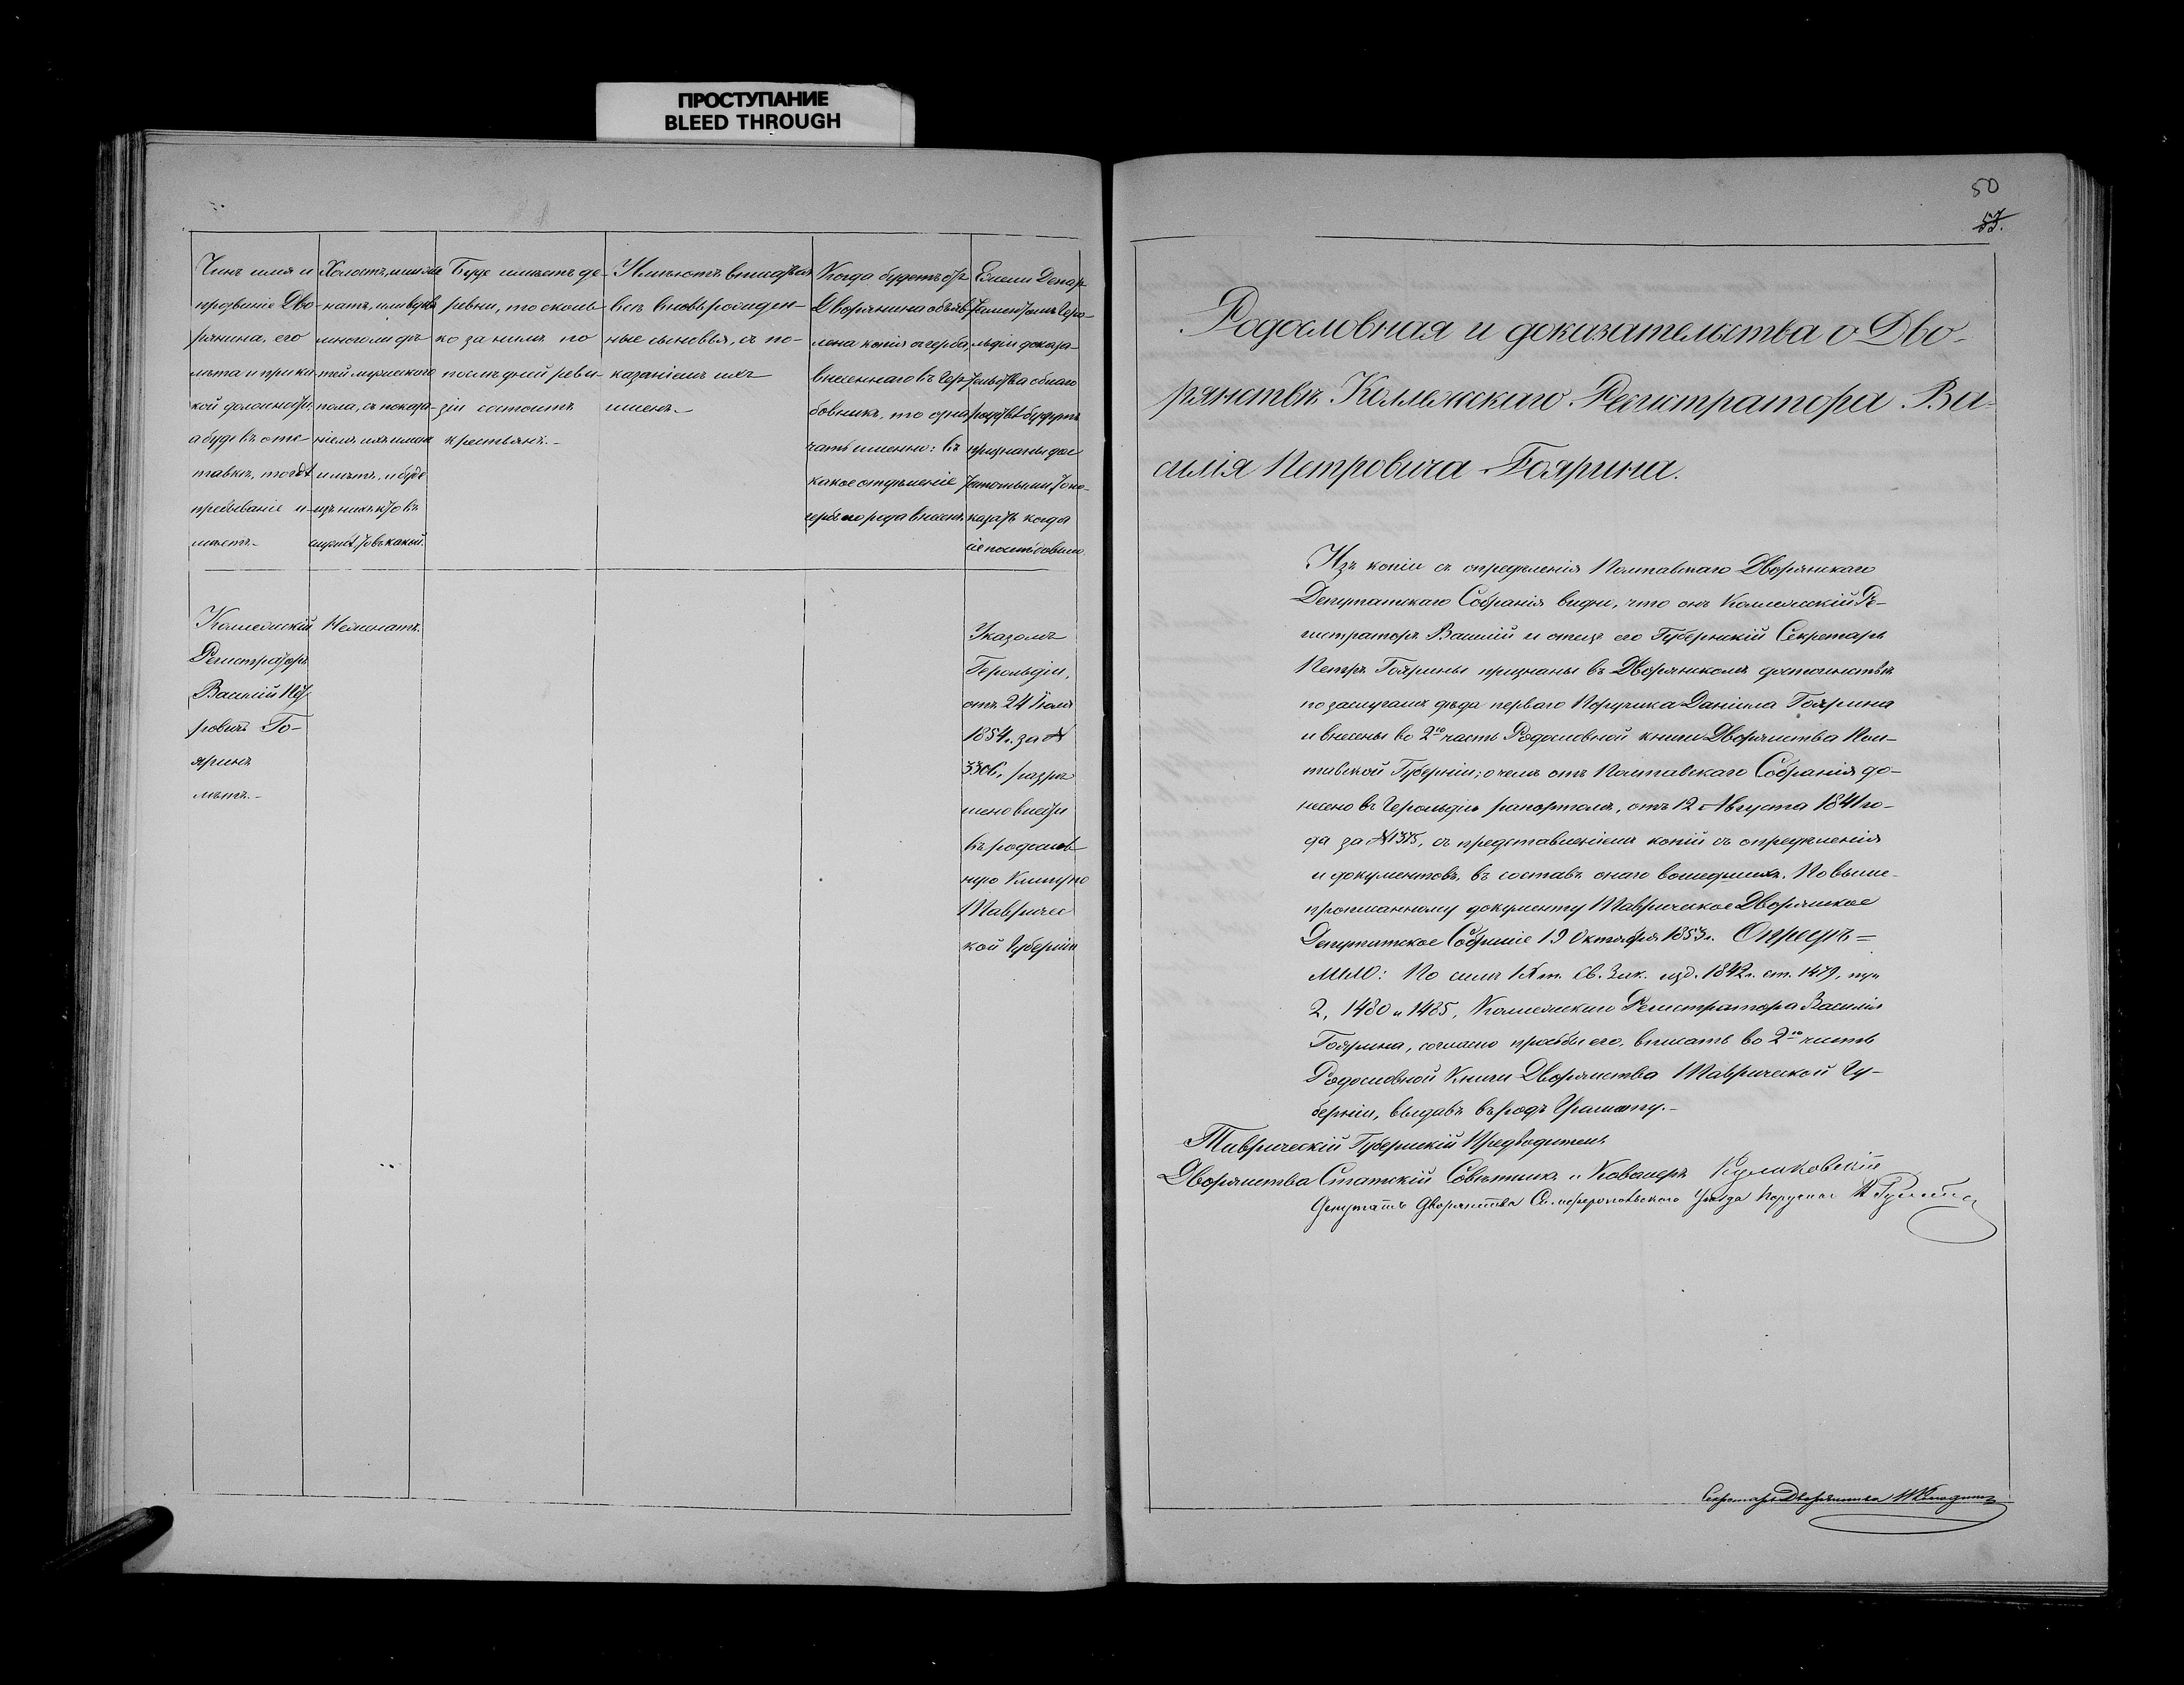 ПРОСТУПАНИЕ
BLEED THROUGH
Чинъ имя и
прозваніе Дво-
рянина, его
лѣта и при ка-
кой должности,
а буде въ отс-
тавкѣ, то гдѣ
пребываніе и-
мѣетъ.-
Холостъ, или же-
натъ, или вдовъ
много ли дѣ-
тей мужескаго
пола, съ показа-
ніемъ ихъ имянъ
и лѣтъ, и буде
изъ нихъ кто въ
службѣ, то въ какой.
Буде имѣетъ де-
ревни, то сколь-
ко за нимъ по
послѣдней реви-
зіи состоитъ
крестьянъ.-
Имѣютъ вписаться
всѣ вновь рожден-
ные сыновья, съ по-
казаніемъ ихъ
именъ.-
Когда будетъ отъ
Дворянина объяв-
лена копія съ герба,
внесеннаго въ Гер-
бовникъ, то озна-
чать именно: въ
какое отдѣленіе
гербъ его рода внесенъ.
Ежели Депар-
таментомъ Геро-
льдіи доказа-
тельства онаго
рода будутъ
признаны дос-
таточными, то по-
казать когда
сіе послѣдовало
Коллежскій
Регистраторъ
Василій Пет-
ровичъ Го-
яринъ
лѣтъ.-
Неженатъ.
Указомъ
Герольдіи,
отъ 24 Іюля
1854 г. за №
3306, разрѣ
шено внести
въ родослов-
ную Книгу по
Тавричес
кой Губерніи
50
53.
Родословная и доказательства о Дво-
рянствѣ Коллежскаго Регистратора Ва-
силія Петровича Гоярина.
Изъ копіи съ опредѣленія Полтавскаго Дворянскаго
Депутатскаго Собранія видно, что онъ Коллежскій Ре-
гистраторъ Василій и отецъ его Губернскій Секретарь
Петръ Гоярины признаны въ Дворянскомъ достоинствѣ
по заслугамъ дѣда перваго Поручика Даніила Гоярина
и внесены во 2ю часть Родословной книги Дворянства Пол-
тавской Губерніи; о чемъ отъ Полтавскаго Собранія до-
несено въ Герольдію рапортомъ, отъ 12 Августа 1841 го-
да за № 1375, съ представленіемъ копій съ опредѣленія
и документовъ, въ составъ онаго вошедшихъ. По выше-
прописанному документу Таврическое Дворянское
Депутатское Собраніе 19 Октября 1853 г. Опредѣ=
лило: По силѣ IX т. Св. Зак. изд. 1842 г. ст. 1479, пун
2, 1480 и 1485, Коллежскаго Регистратора Василія
Гоярина, согласно просьбы его, вписать во 2ю часть
Родословной Книги Дворянства Таврической Гу-
берніи, выдавъ въ родъ Грамоту.-
Таврическій Губернскій Предводитель
Дворянства Статскій Совѣтникъ и Кавалеръ
Депутатъ Дворянства Симферопольскаго Уѣзда Поручикъ
Секретарь Дворянства